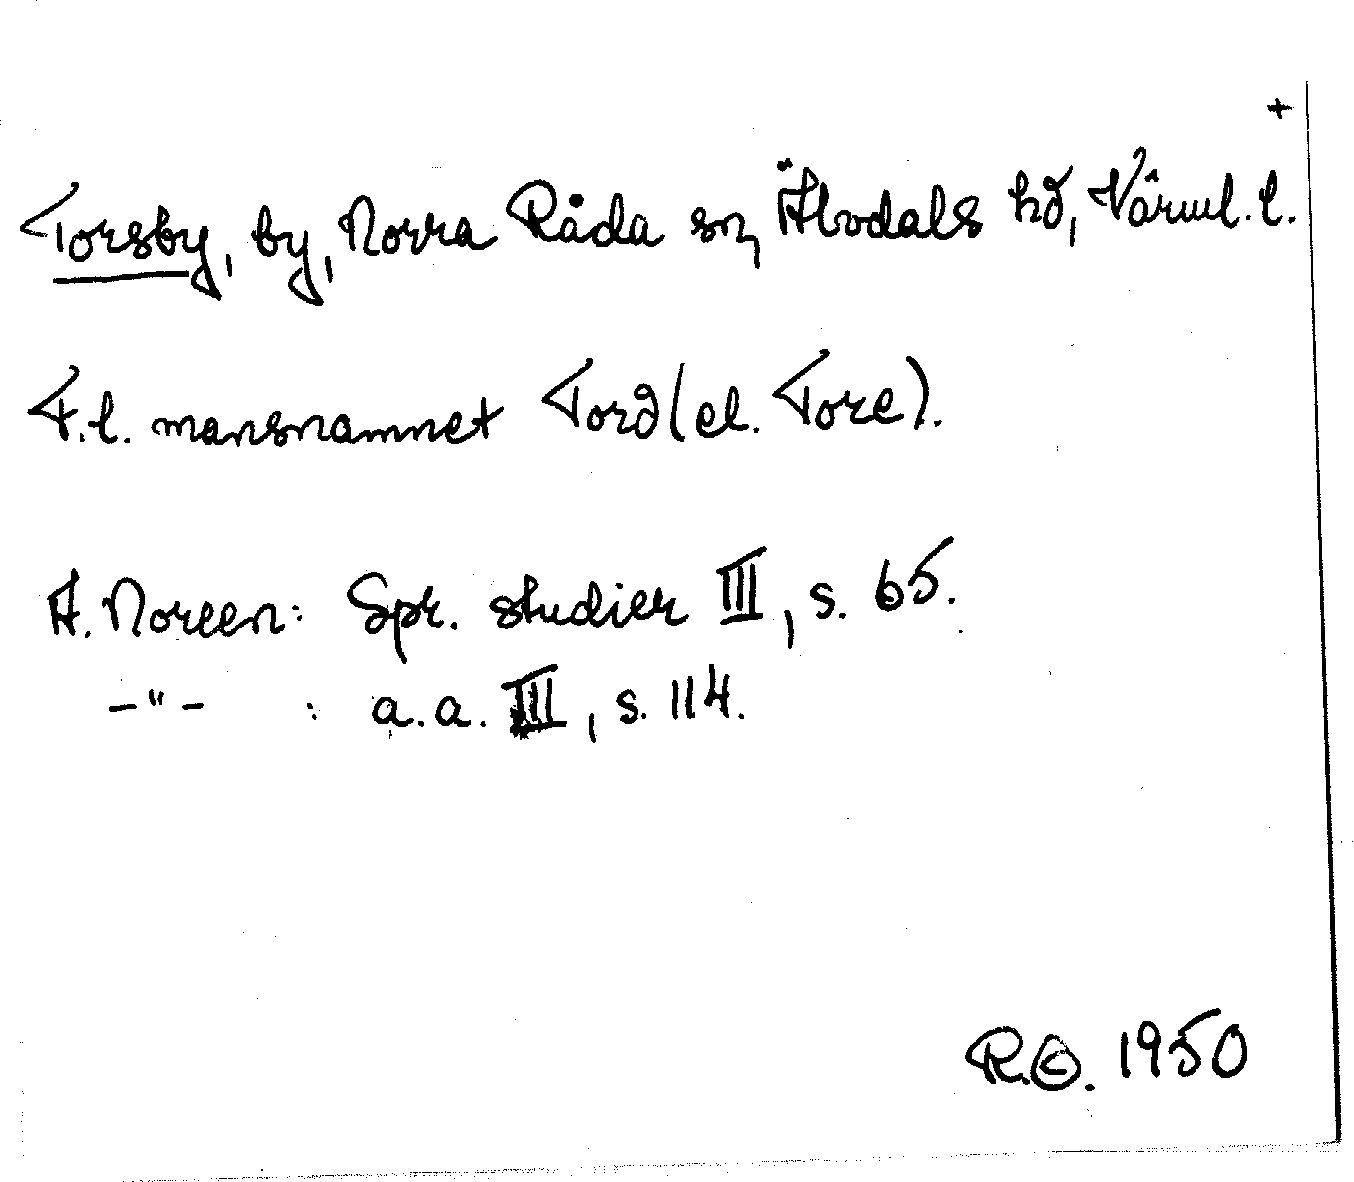 +
Torsby, by, Norra Råda sn, Älvdals hd, Värml. l.
T. l. mansnamnet Tord (el. Tore).
A. Noreen: Spr. studier III, s. 65.
-"- : a. a. III, s. 114.
1950